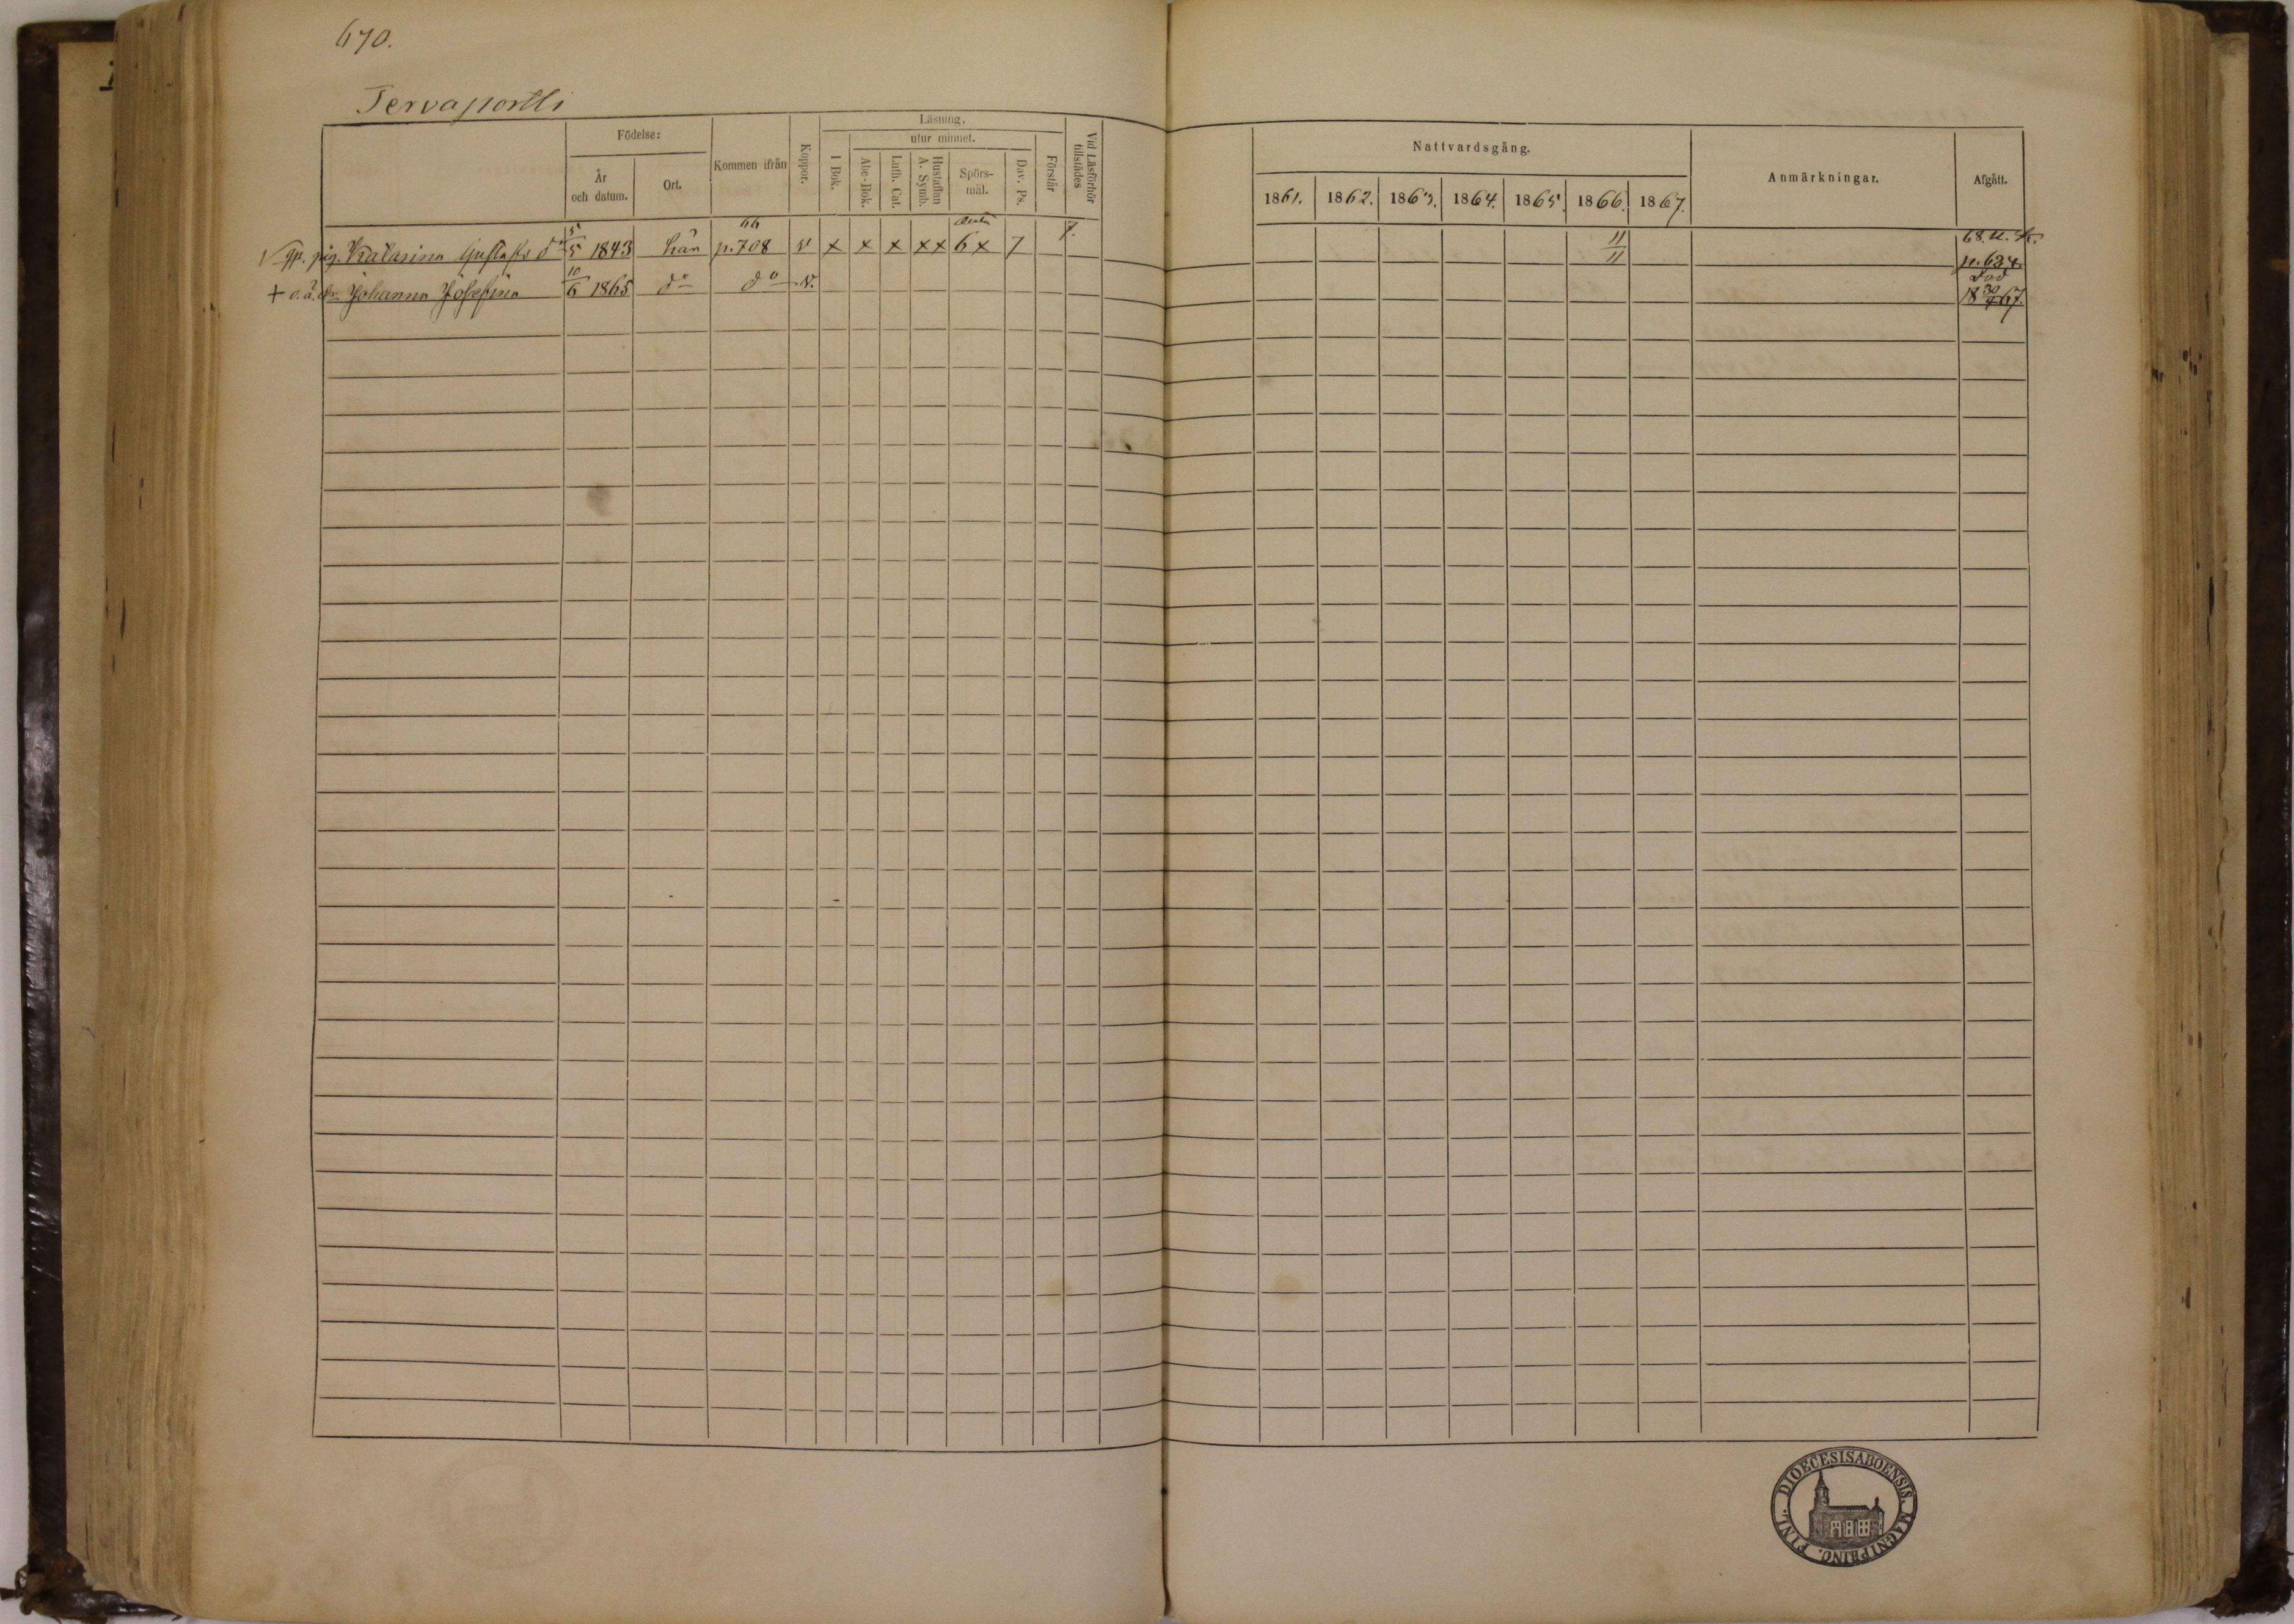 670.
Tervaportti
Födelse:
År och datum.
Ort.
Kommen ifrån
Koppor.
Läsning.
I Bok.
utur minnet.
Abc-Bok.
Luth. Cat.
Hustaflan A. Symb.
Spörsmål.
Dav. Ps.
Förstår
Vid Läsförhör tillstädes
Nattvardsgång.
1861. 1862. 1863. 1864. 1865. 1866. 1867.
Anmärkningar.
Afgått.
pig. Katarina Gustafs dr 5/5 1843 hän 66 p. 708 v x x x xx 6 x 7 7. 11/11 68. p. 634.
+ o. ä. dr. Johanna Josefina 10/6 1865 do do v. död 18 30/4 67.
DIOECESIS ABOENSIS. MAGNI PRINC. FINL.